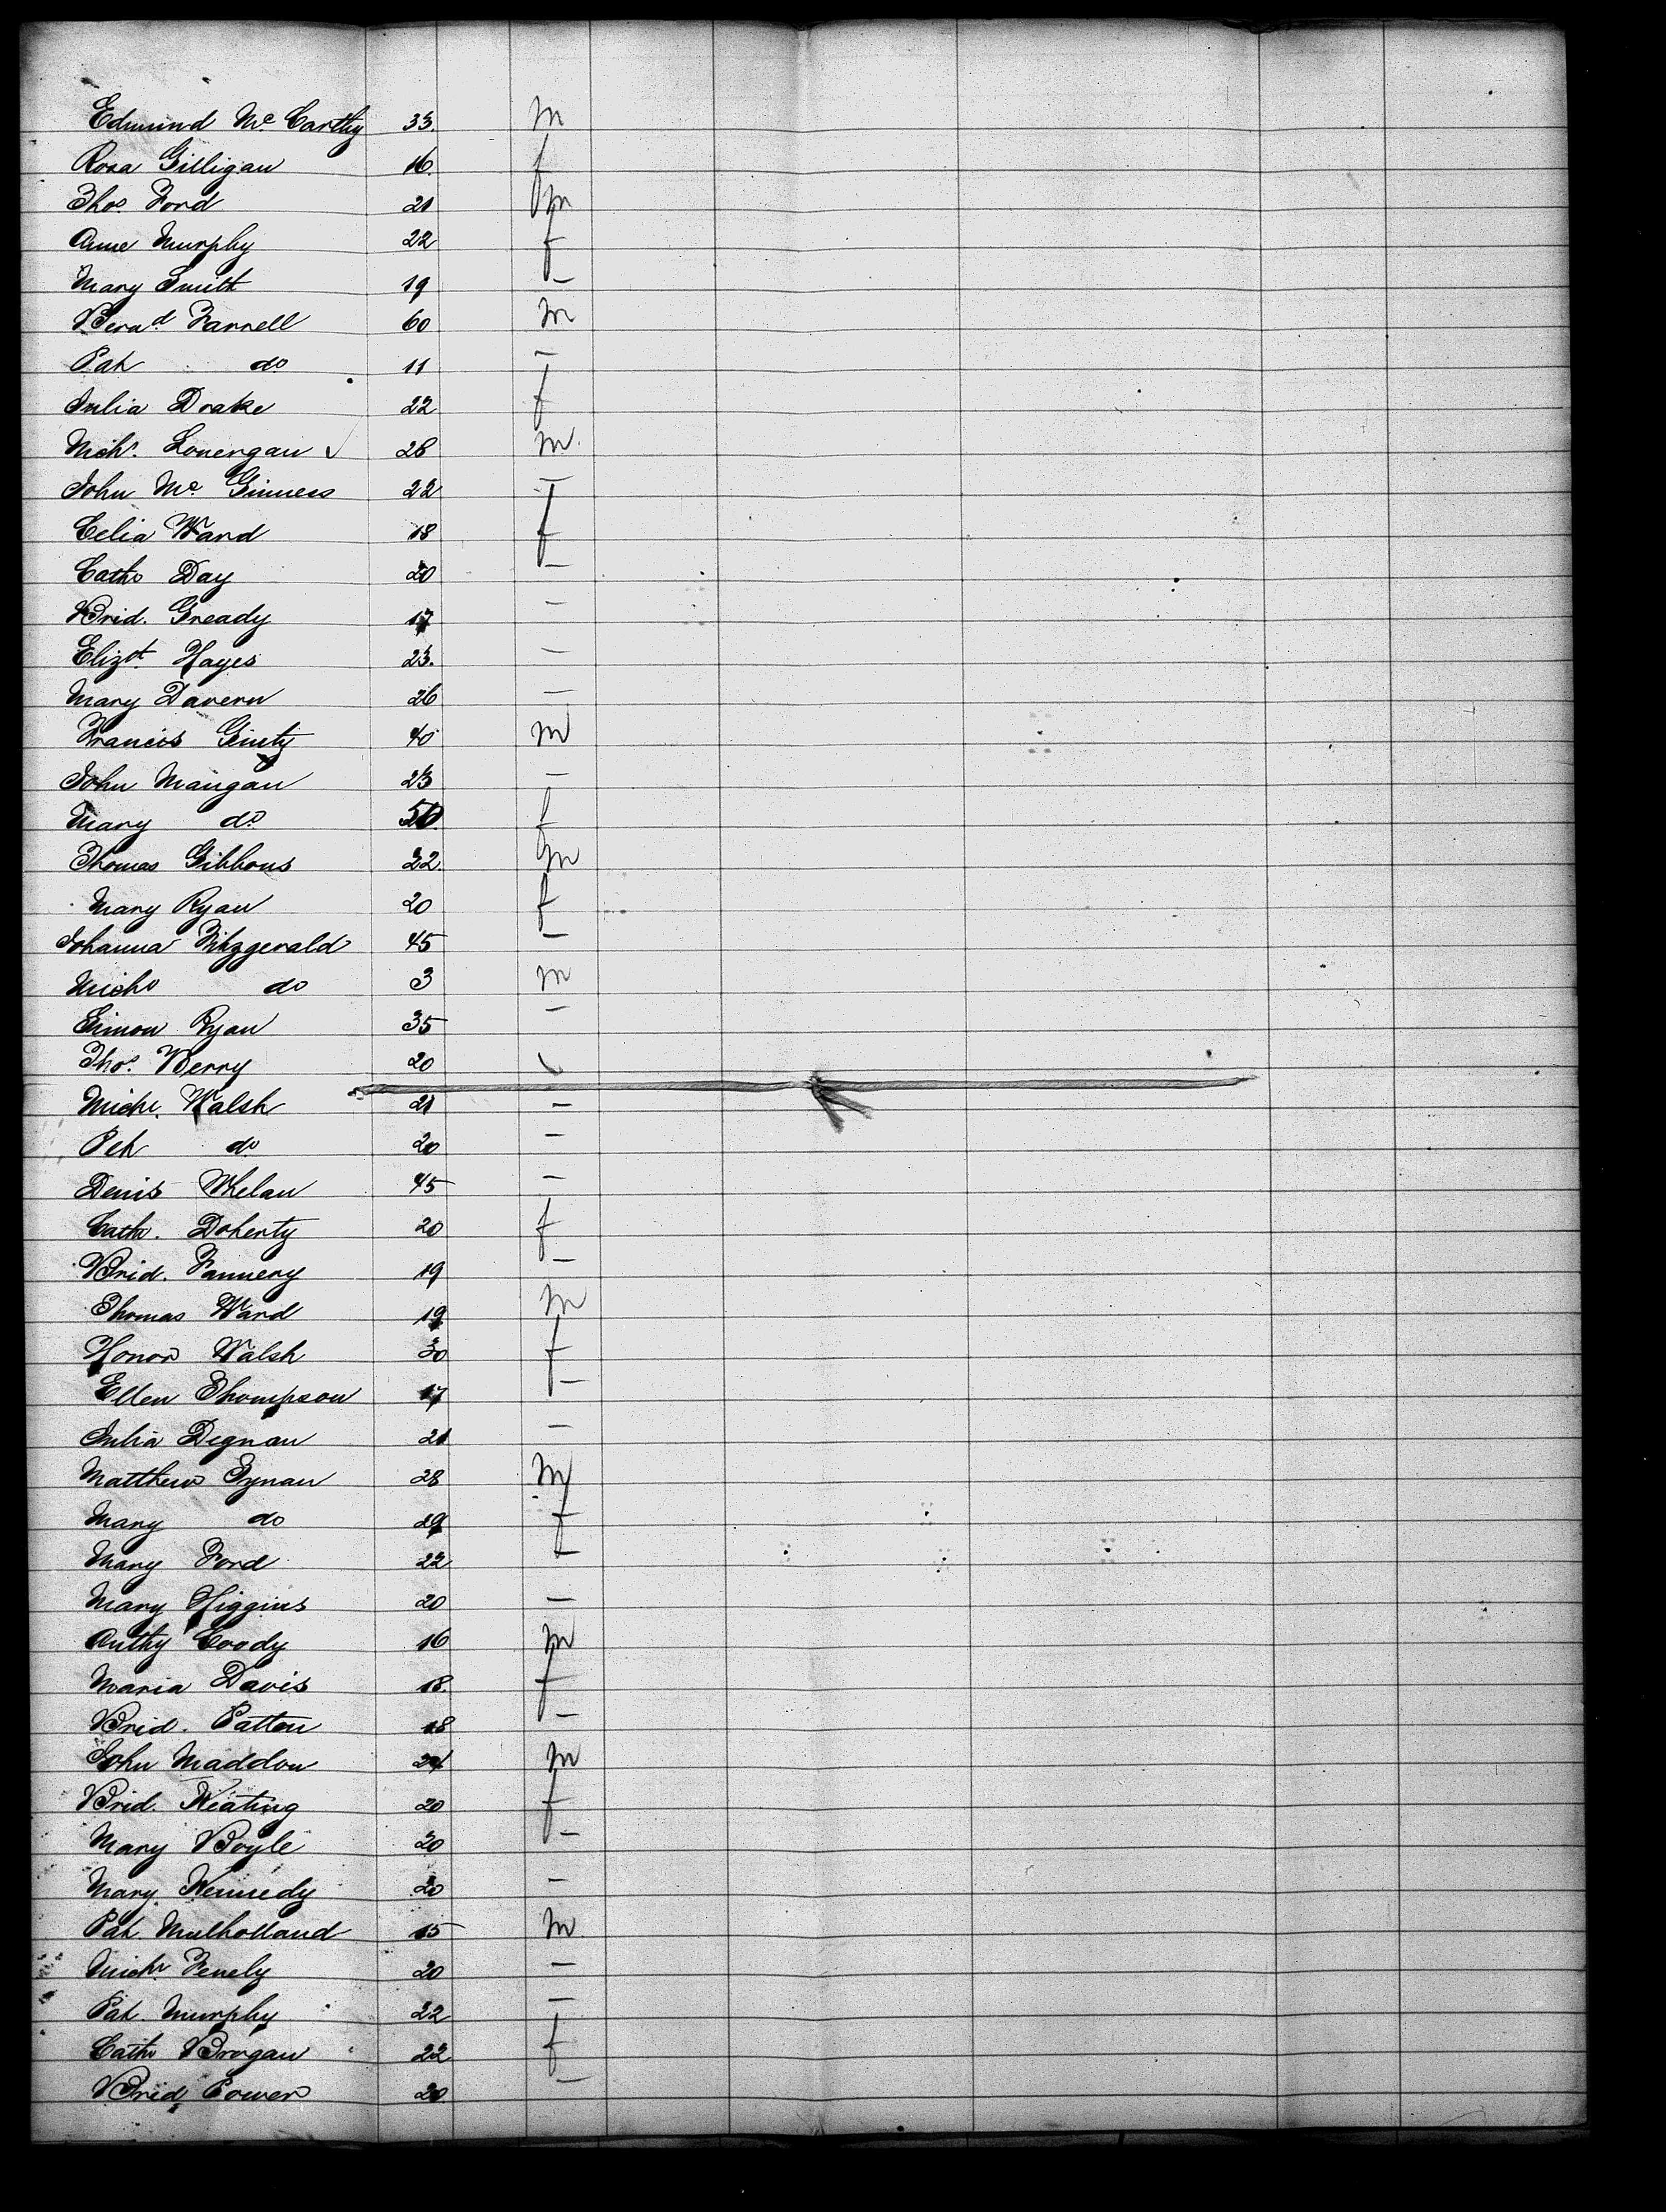 Edmund Mc Carthy 33. m
Rosa Gilligan 16. f
Thos. Ford 21 m
Anne Murphy 22 f
Mary Smith 19 —
Bernd. Farrell 60 m
Pat do 11 —
Julia Drake 22 f
Mich. Lonergan ✓ 28 m
John Mc Ginness 22 —
Celia Ward 18 f
Cath Day 20 —
Brid. Gready 17 —
Elizt. Hayes 23. —
Mary Davern 26 —
Francis Ginty 40 m
John Mangan 23 —
Mary do f
Thomas Gibbons 22. m
Mary Ryan 20 f
Johanna Fitzgerald 45 —
Mich do 3 m
Simon Ryan 35 —
Thos. Berry 20
Mich. Walsh 21 —
Pet do 20 —
Denis Whelan 45 —
Cath. Doherty 20 f
Brid. Fannery 19 —
Thomas Ward 19 m
Honor Walsh 30 f
Ellen Thompson 17 —
Julia Degnan 21 —
Matthew Eynan 28 m
Mary do 29 f
Mary Ford 22 —
Mary Higgins 20 —
Anthy Coody 16 m
Maria Davis 18. f
Brid. Patten 18 —
John Maddon m
Brid. Keating 20 f
Mary Boyle 20 —
Mary Kennedy 20 —
Pat. Mulholland 15 m
Mich Fenely 20 —
Pat. Murphy 22 —
Cath Brogan 22 f
Brid Power 20 —